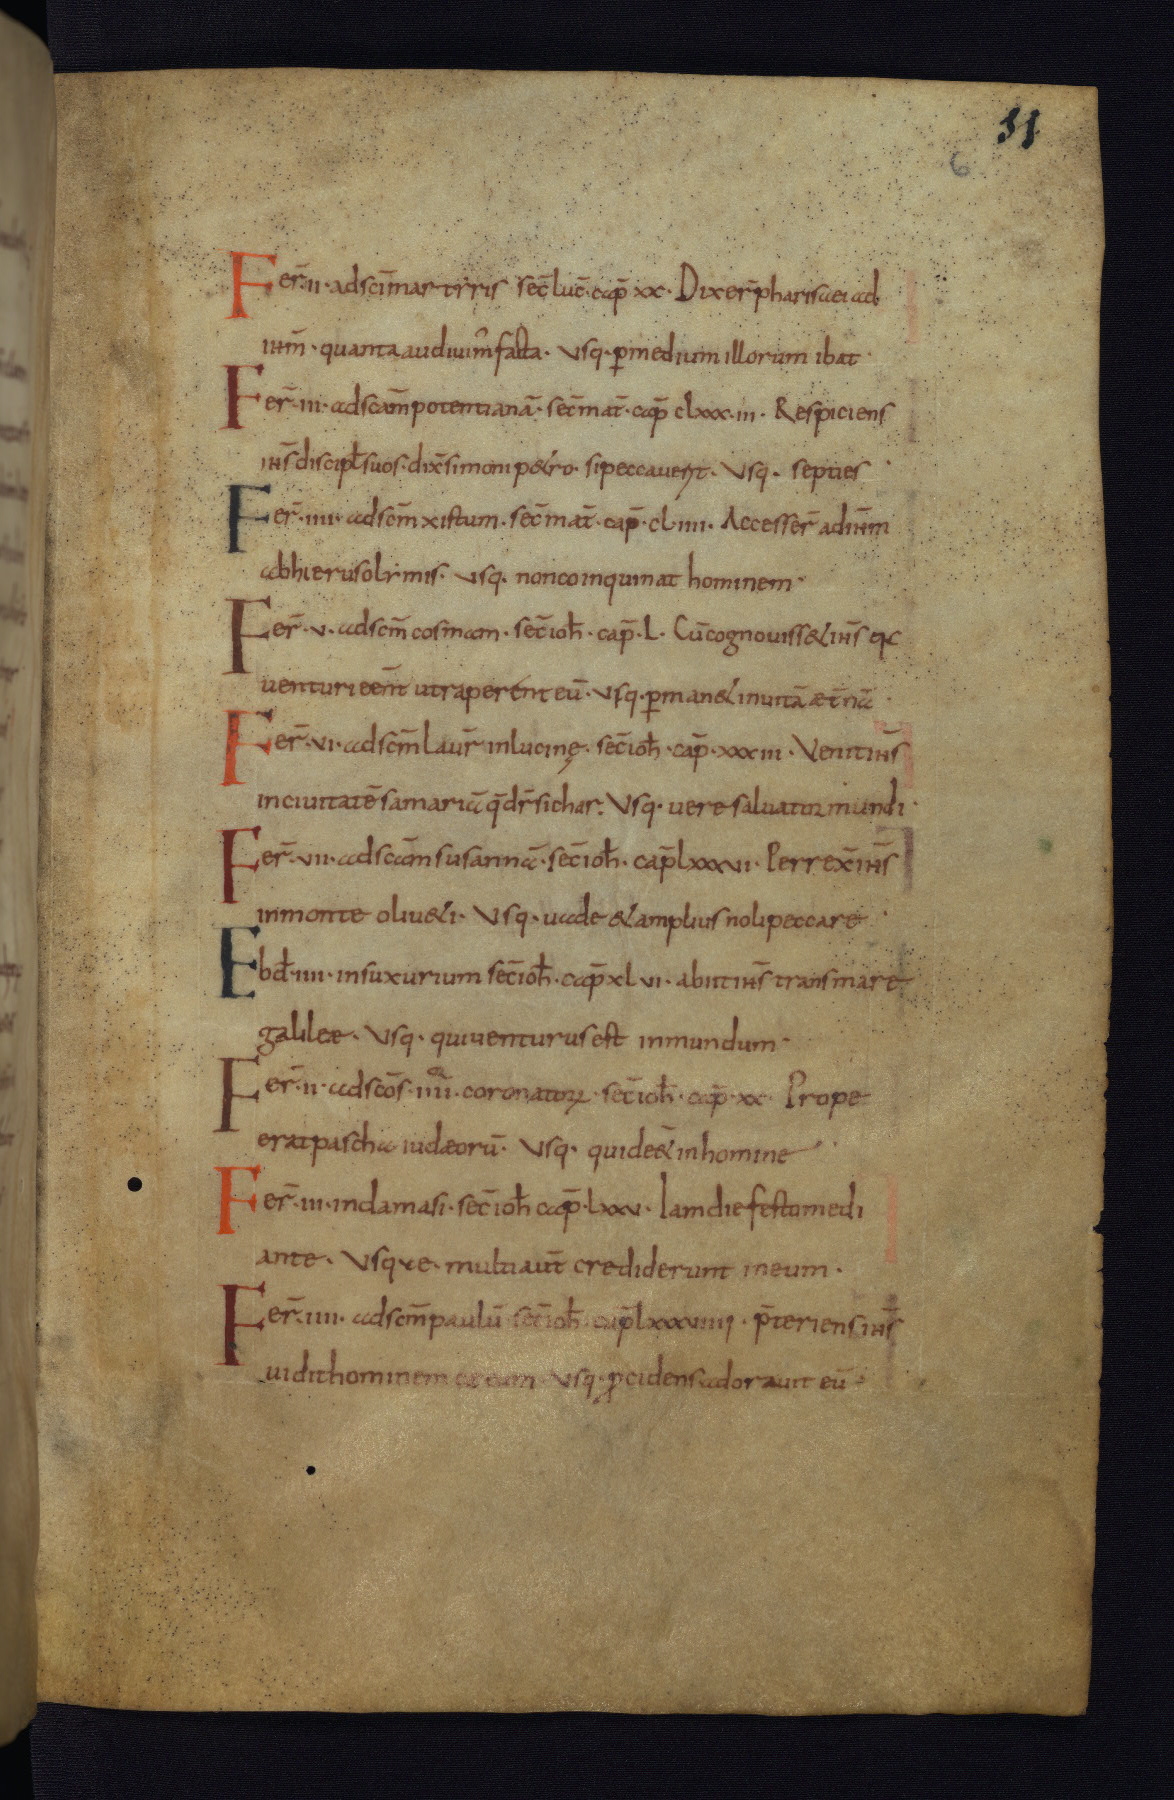 31
6
Fer̄·ii· ad scm̄ martyris sec̄ luc̄· cap̄ xx· Dixer̄ pharisaei ad
ihm̄· quanta audiuim̄ facta· Vsq· p̄ medium illorum ibat·
Fer̄·iii· ad scam̄ potentianā· sec̄ mat̄· cap̄ clxxx·iii· Respiciens
ihs̄ discipl̄ suos· dix̄ simoni p&ro· si peccauer̄t· Vsq· septies·
Fer̄·iiii· ad scm̄ xistum· sec̄ mat̄· cap̄· cl·iiii· Accesser̄ ad ihm̄
ab hierusolymis· Vsq· non coinquinat hominem·
Fer̄·v· ad scm̄ cosmam· sec̄ ioh̄· cap̄·L· Cū cognouiss& ihs̄ q̄c
uenturi eēnt ut raperent eū· Vsq· p̄man& in uitā aet̄nā·
Fer̄·vi· ad scm̄ laur̄ in lucinę· sec̄ ioh̄· cap̄·xxxiii· Venit ihs̄
in ciuitatē samariæ q̄ dr̄ sichar· Vsq· uere saluator mundi·
Fer̄·vii· ad scam̄ susannā· sec̄ ioh̄· cap̄ lxxxvi· Perrex̄ ihs̄
in monte oliu&i· Vsq· uade & amplius noli peccare·
Ebd̄·iiii· in suxurium sec̄ ioh̄· cap̄ xlvi· abiit ihs̄ trans mare
galileæ· Vsq· qui uenturus est in mundum·
Fer̄·ii· ad scos̄·iiii· coronatorꝝ· sec̄ ioh̄· cap̄·xx· Prope
erat pascha iudæorū· Vsq· quid e& in homine·
Fer̄·iii· in damasi· sec̄ ioh̄ cap̄·lxxv· Iam die festo medi
ante· Vsque· multi aut̄ crediderunt in eum·
Fer̄·iiii· ad scm̄ paulū sec̄ ioh̄ cap̄ lxxxviiii· p̄teriens ihs̄
uidit hominem cæcum Vsq· p̄cidens adorauit eū·